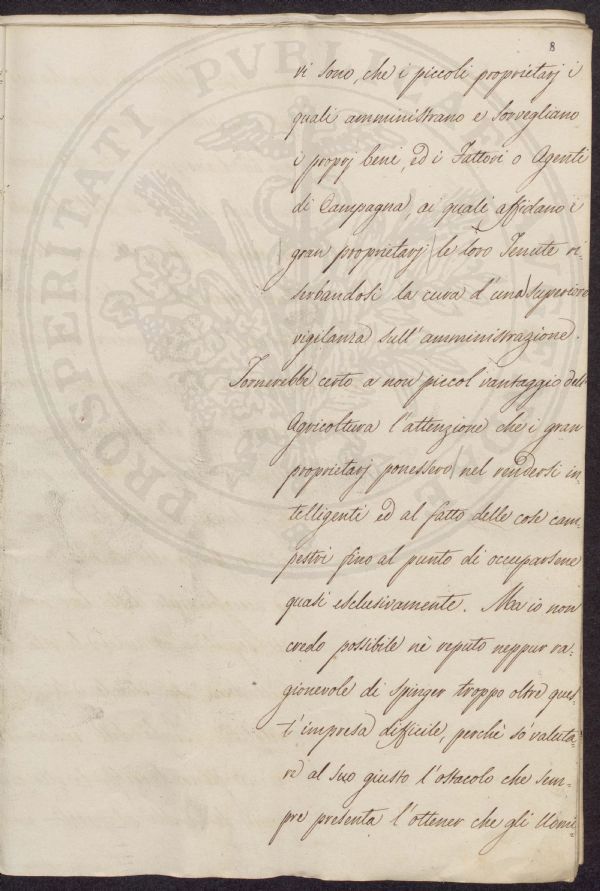 8
vi sono, che i piccoli proprietarj i
quali amministrano e sorvegliano
i proprj beni, ed i Fattori o Agenti
di Campagna, ai quali affidano i
gran proprietarj le loro Tenute ri-
serbandosi la cura d'una superiore
vigilanza sull'amministrazione.
Tornerebbe certo a non piccol vantaggio dell'
Agricoltura l'attenzione che i gran
proprietarj ponessero nel rendersi in-
telligenti ed al fatto delle cose cam-
pestri fino al punto di occuparsene
quasi esclusivamente. Ma io non
credo possibile nè reputo neppur ra-
gionevole di spinger troppo oltre ques-
t'impresa difficile, perchè so valuta-
re al suo giusto l'ostacolo che sem-
pre presenta l'ottener che gli Uomi-
PROSPERITATI PVBLICAE